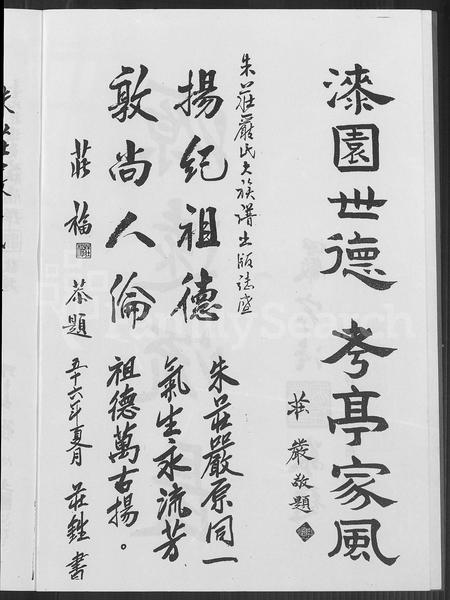 漆園世德 考亭家風
莊嚴敬題
朱莊嚴氏大族譜出版誌盛
揚紀祖德
敦尚人倫
莊福
恭題
朱莊嚴原同一
氣生永流芳
祖德萬古揚。
五十六年夏月 莊銼 書
FamilySearch